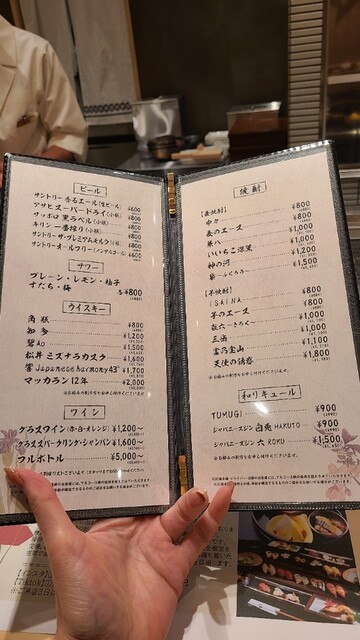 ビール
サントリー 香るエール(生ビール) ¥600
アサヒスーパードライ(小瓶) ¥800
サッポロ 黒ラベル(小瓶) ¥800
キリン 一番搾り(小瓶) ¥800
サントリー ザ・プレミアムモルツ(小瓶) ¥800
サントリーオールフリー(ノンアルコール) ¥600
サワー
プレーン・レモン・柚子
すだち・梅 各¥800
ウイスキー
角瓶 ¥800
知多 ¥1,200
碧Ao ¥1,500
松井 ミズナラカスク ¥1,600
響 Japanese harmony 43° ¥1,700
マッカラン 12年 ¥2,000
ワイン
グラスワイン(赤・白・オレンジ) ¥1,200〜
グラススパークリング・シャンパン ¥1,600〜
フルボトル ¥5,000〜
焼酎
【麦焼酎】
中々 ¥800
麦のエース ¥800
兼八 ¥1,000
いいちこ深薫 ¥1,000
神の河 ¥1,200
¥1,500
【芋焼酎】
ISAINA ¥800
芋のエース ¥800
¥1,000
三岳 ¥1,000
富乃宝山 ¥1,100
天使の誘惑 ¥1,800
和リキュール
TUMUGI ¥900
ジャパニーズジン 白兎 HAKUTO ¥900
ジャパニーズジン 六 ROKU ¥1,500